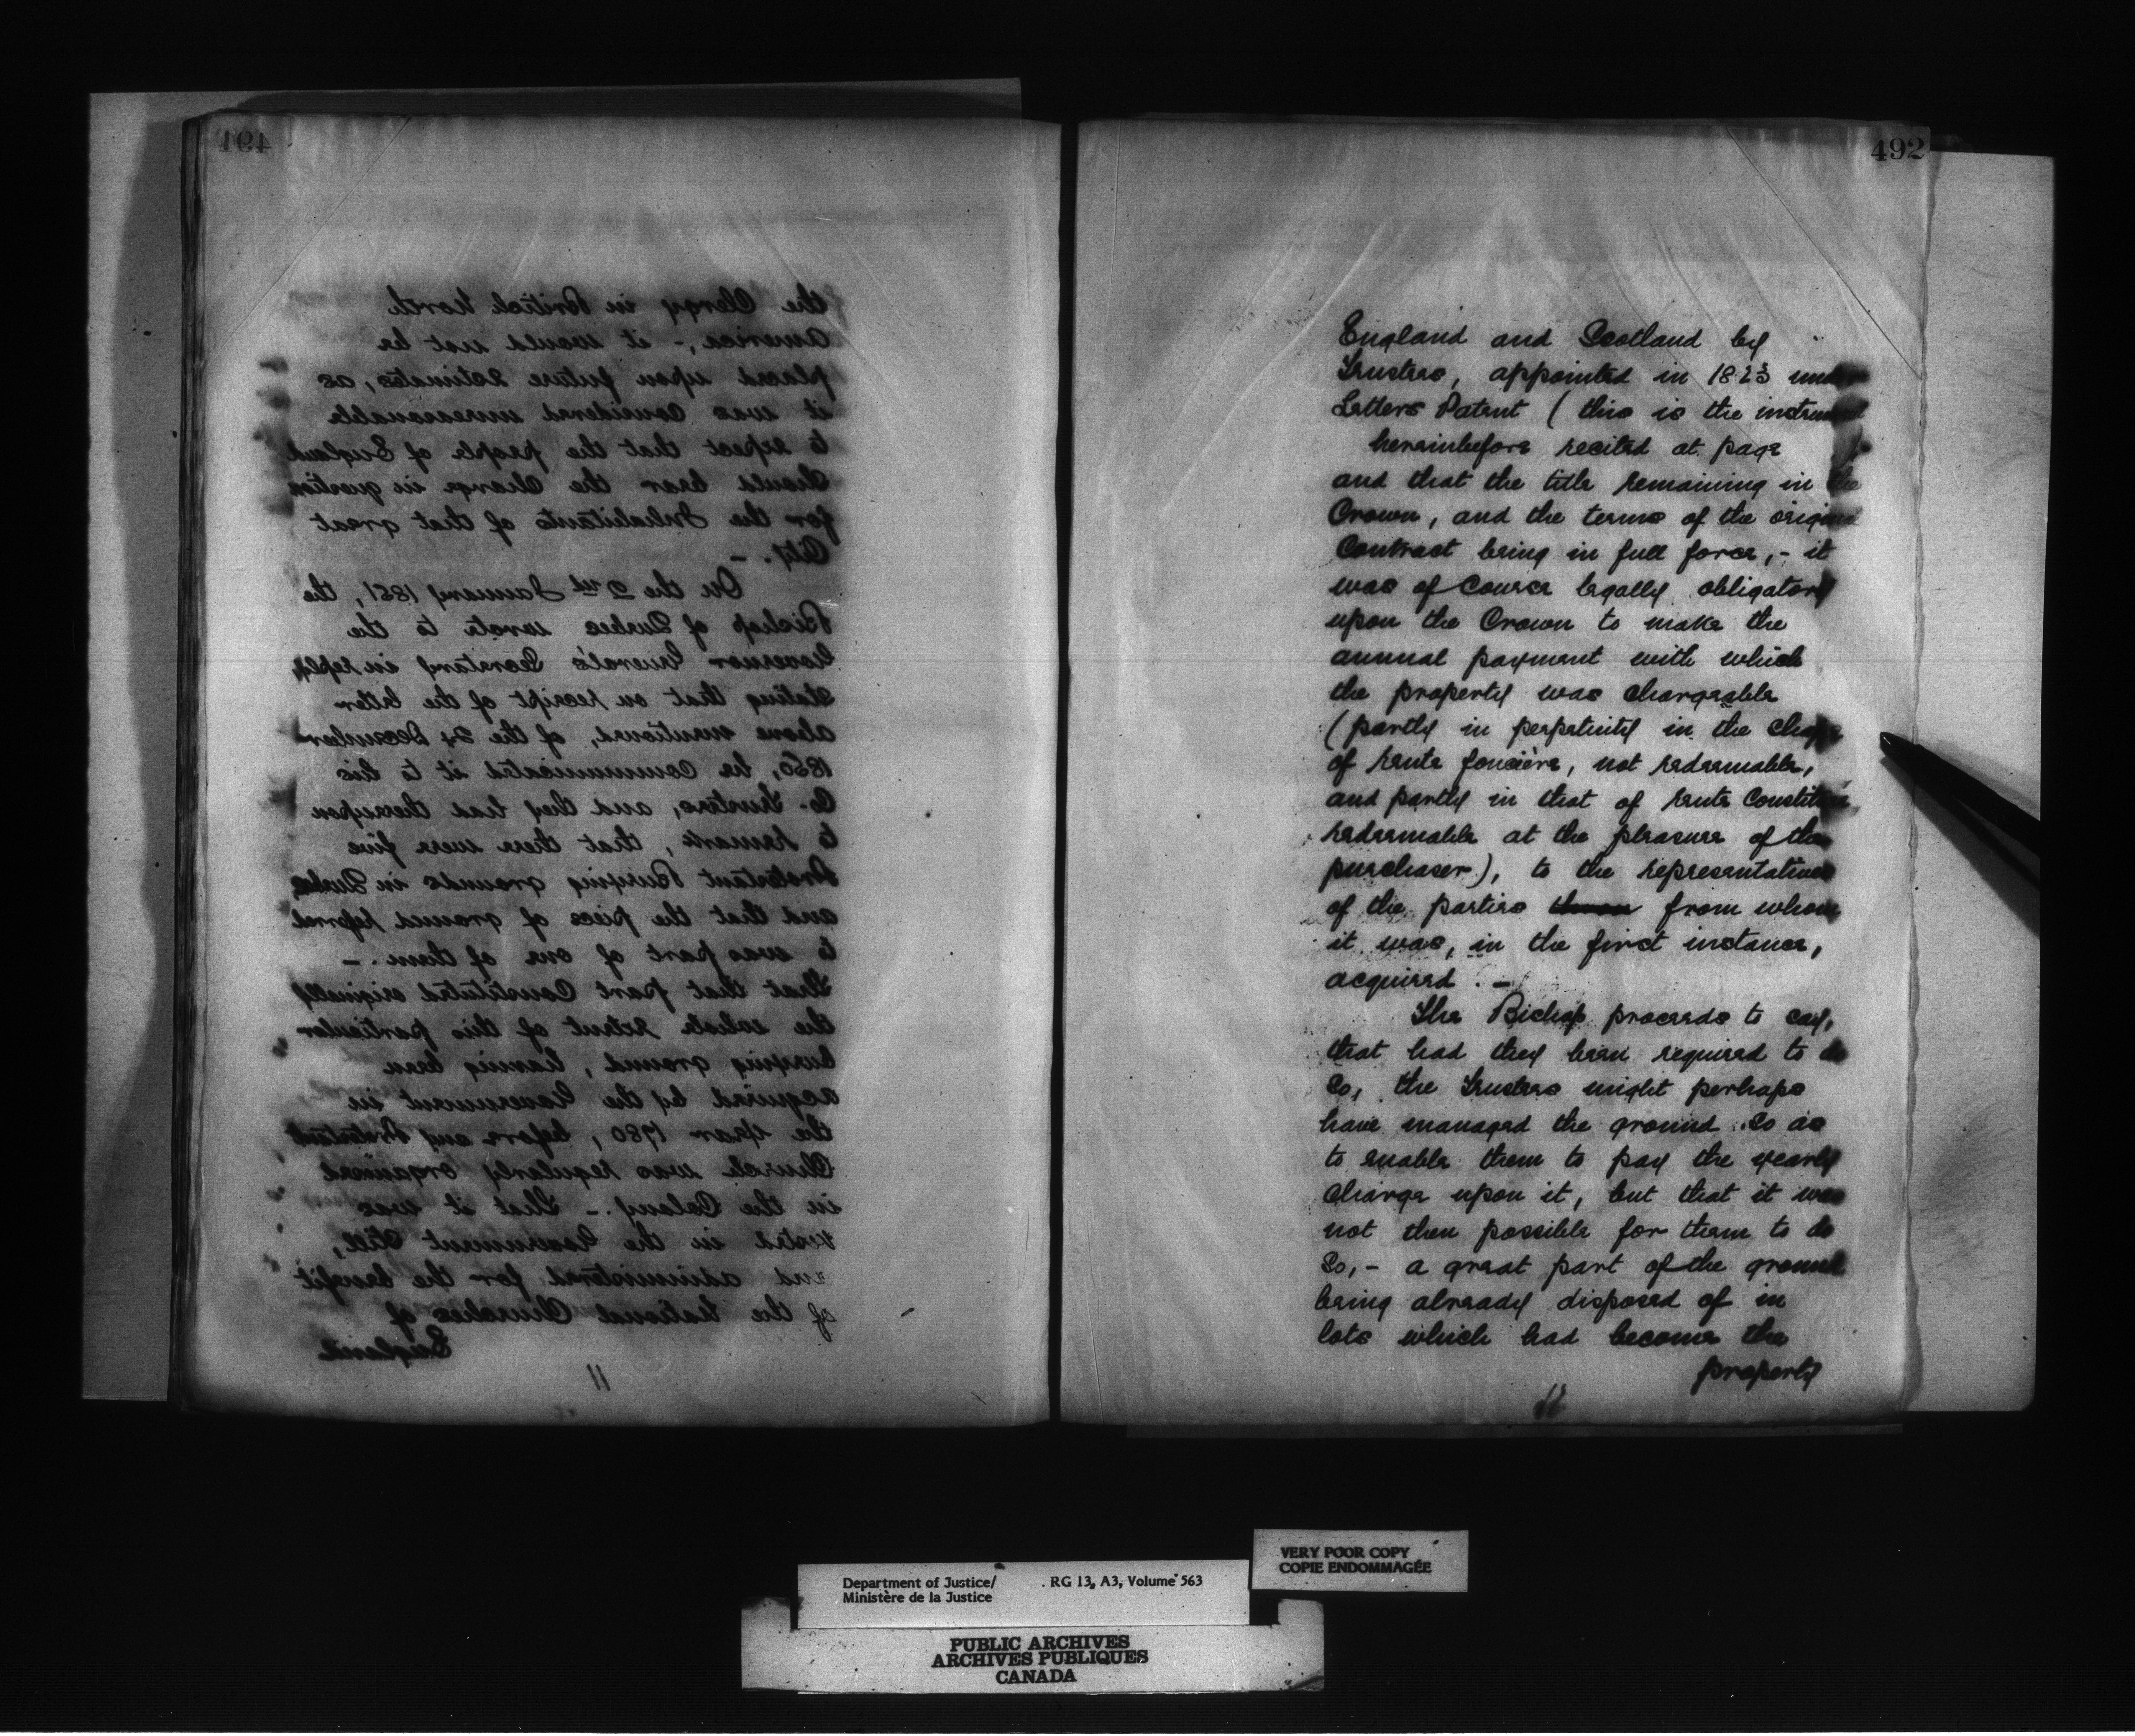 491
the Clergy in British North
America,- it would not be
placed upon future Estimates, as
it was considered unreasonable
to expect that the people of England
should bear the charge in question
for the Inhabitants of that great
City. -
On the 2nd January 1851, the
Bishop of Quebec wrote to the
Governor General's Secretary in reply,
stating that on receipt of the letter
above mentioned, of the 24 December
1850, he communicated it to his
Co-Trustees, and they had thereupon
to remark, that there were five
Protestant Burying grounds in Quebec,
and that the piece of ground referred
to was part of one of them. -
That that part Constituted originally
the whole extent of this particular
burying ground, having been
acquired by the Government in
the year 1780, before any Protestant
Church was regularly organized
in the Colony. - That it was
vested in the Government still,
and administered for the benefit
of the National Churches of
England
11
492
England and Scotland by
Trustees, appointed in 1823 under
Letters Patent ( this is the instrument
hereinbefore recited at page
and that the title remaining in the
Crown, and the terms of the original
Contract being in full force,- it
was of course legally obligatory
upon the Crown to make the
annual payment with which
the property was chargeable
(partly in perpetuity in the shape
of rente foncière, not redeemable,
and partly in that of rente Constituée
redeemable at the pleasure of the
purchaser), to the representatives
of the parties from whom
it was, in the first instance,
acquired. -
The Bishop proceeds to say,
that had they been required to do
so, the Trustees might perhaps
have managed the ground so as
to enable them to pay the yearly
charge upon it, but that it was
not then possible for them to do
so,- a great part of the ground
being already disposed of in
lots which had become the
property
12
VERY POOR COPY
COPIE ENDOMMAGÉE
Department of Justice/ RG 13, A3, Volume 563
Ministère de la Justice
PUBLIC ARCHIVES
ARCHIVES PUBLIQUES
CANADA